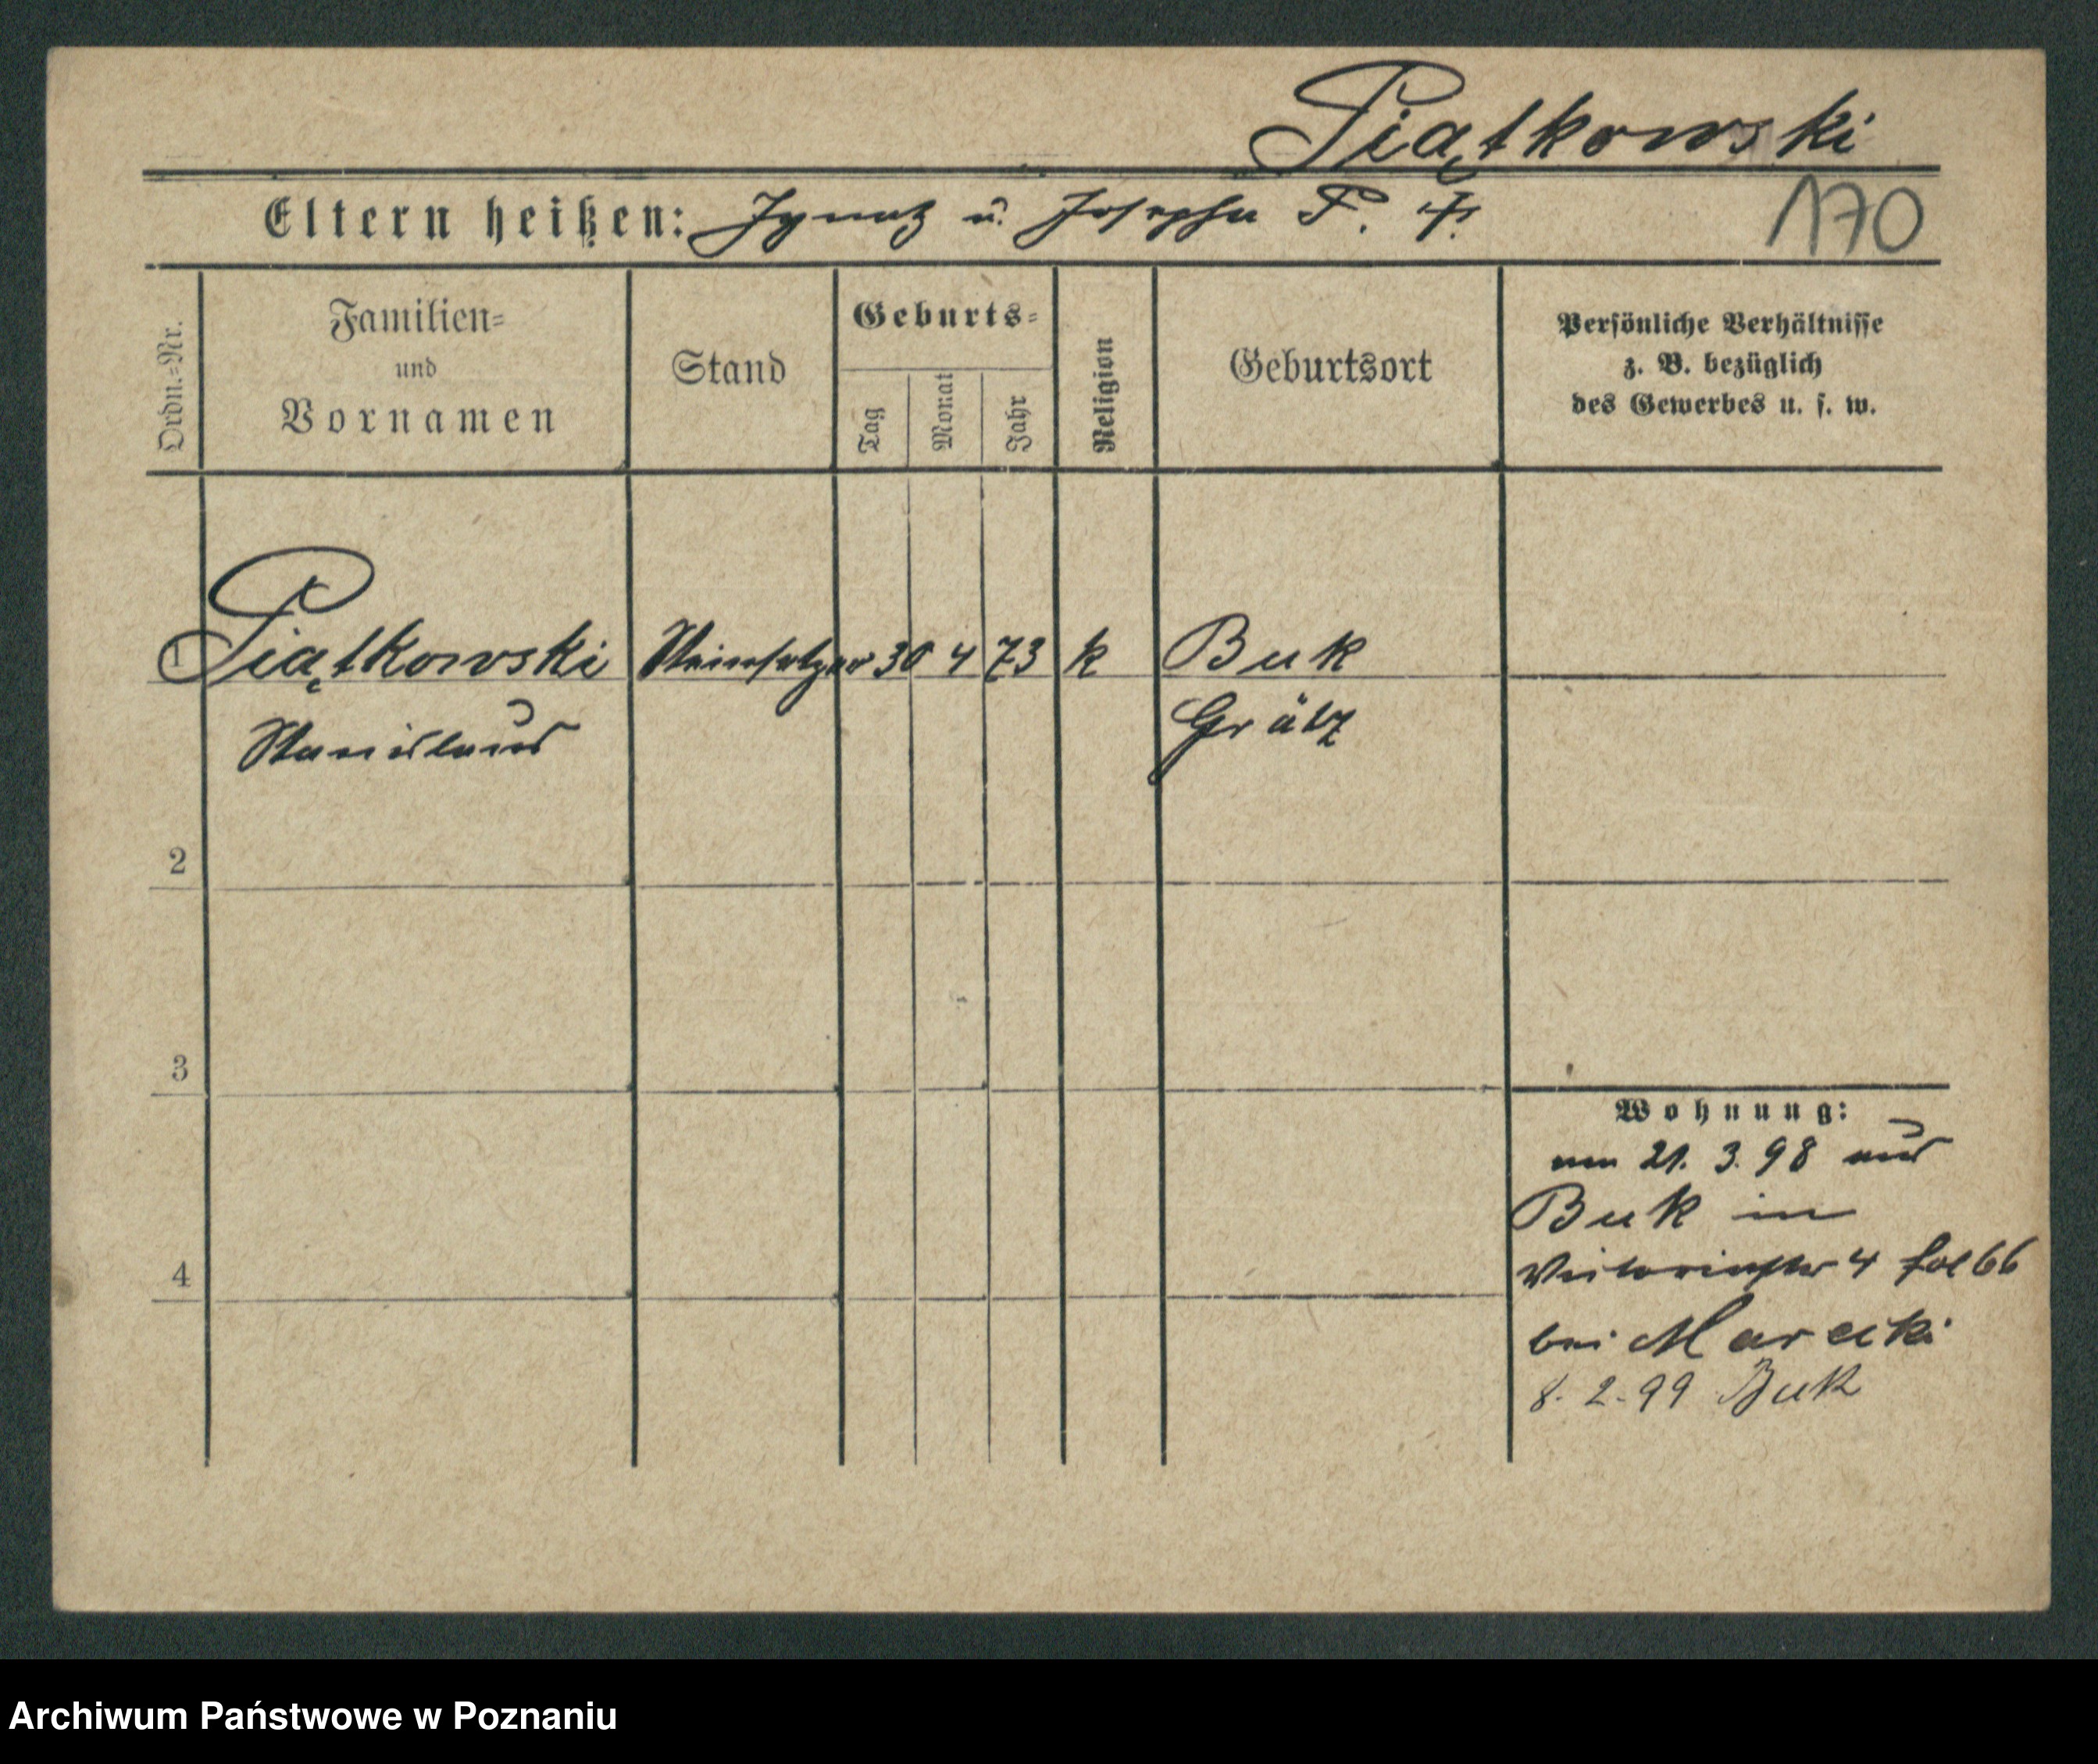 Piątkowski
Eltern heißen: Ignatz u. Josepha P. 
170
Ordn.=Nr.
Familien=
und
Vornamen
Stand
Geburts=
Tag
Monat
Jahr
Religion
Geburtsort
Persönliche Verhältnisse
z. B. bezüglich
des Gewerbes u. s. w.
1 Piątkowski Steinsetzer 30 4 73 k Buk
Stanislaus Grätz
2
3
4
Wohnung:
am 21. 3. 98 aus
Buk in
Victoriastr 4 fol 66
bei Marecki
8. 2. 99 Buk
Archiwum Państwowe w Poznaniu